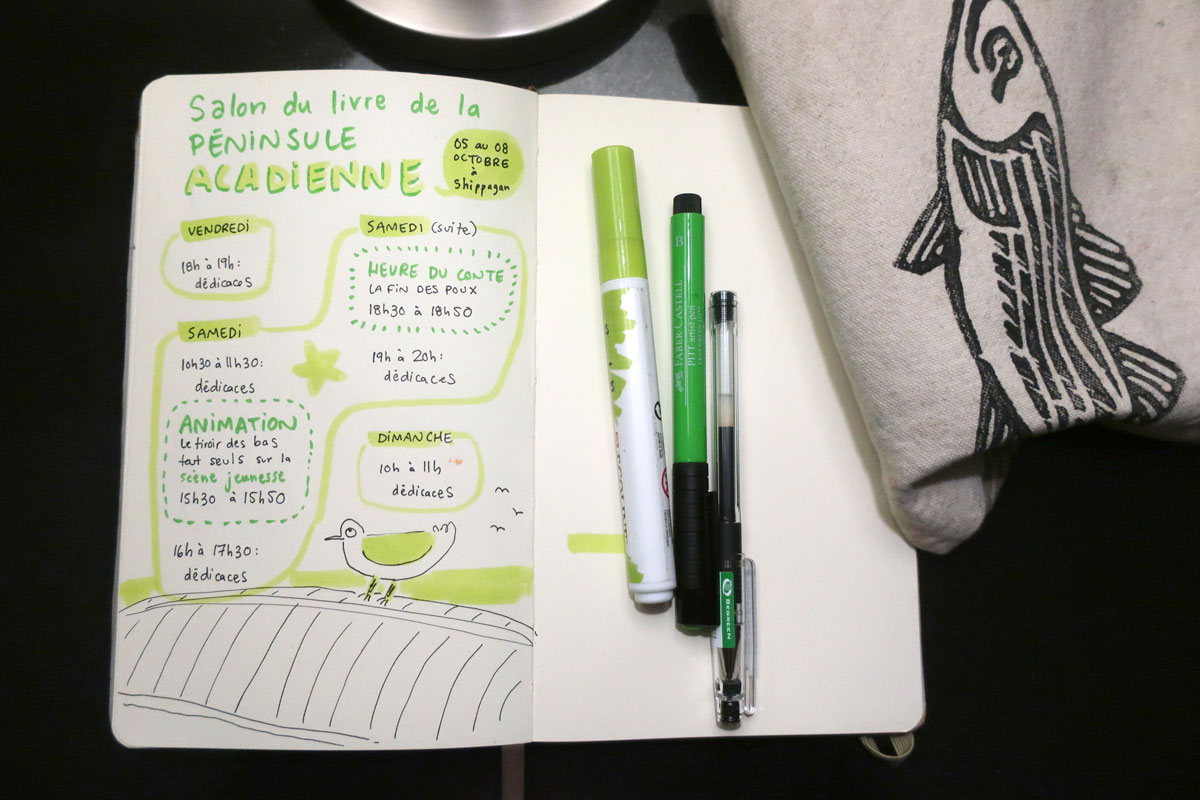 Salon du livre de la
PÉNINSULE
ACADIENNE
05 au 08
OCTOBRE
à
Shippagan
VENDREDI
18h à 19h:
dédicaces
SAMEDI
10h30 à 11h30:
dédicaces
ANIMATION
Le tiroir des bas
tout seuls sur la
scène jeunesse
15h30 à 15h50
16h à 17h30:
dédicaces
SAMEDI (suite)
HEURE DU CONTE
LA FIN DES POUX
18h30 à 18h50
19h à 20h:
dédicaces
DIMANCHE
10h à 11h
dédicaces
B
FABER-CASTELL
PITT artist pen
BEGREEN